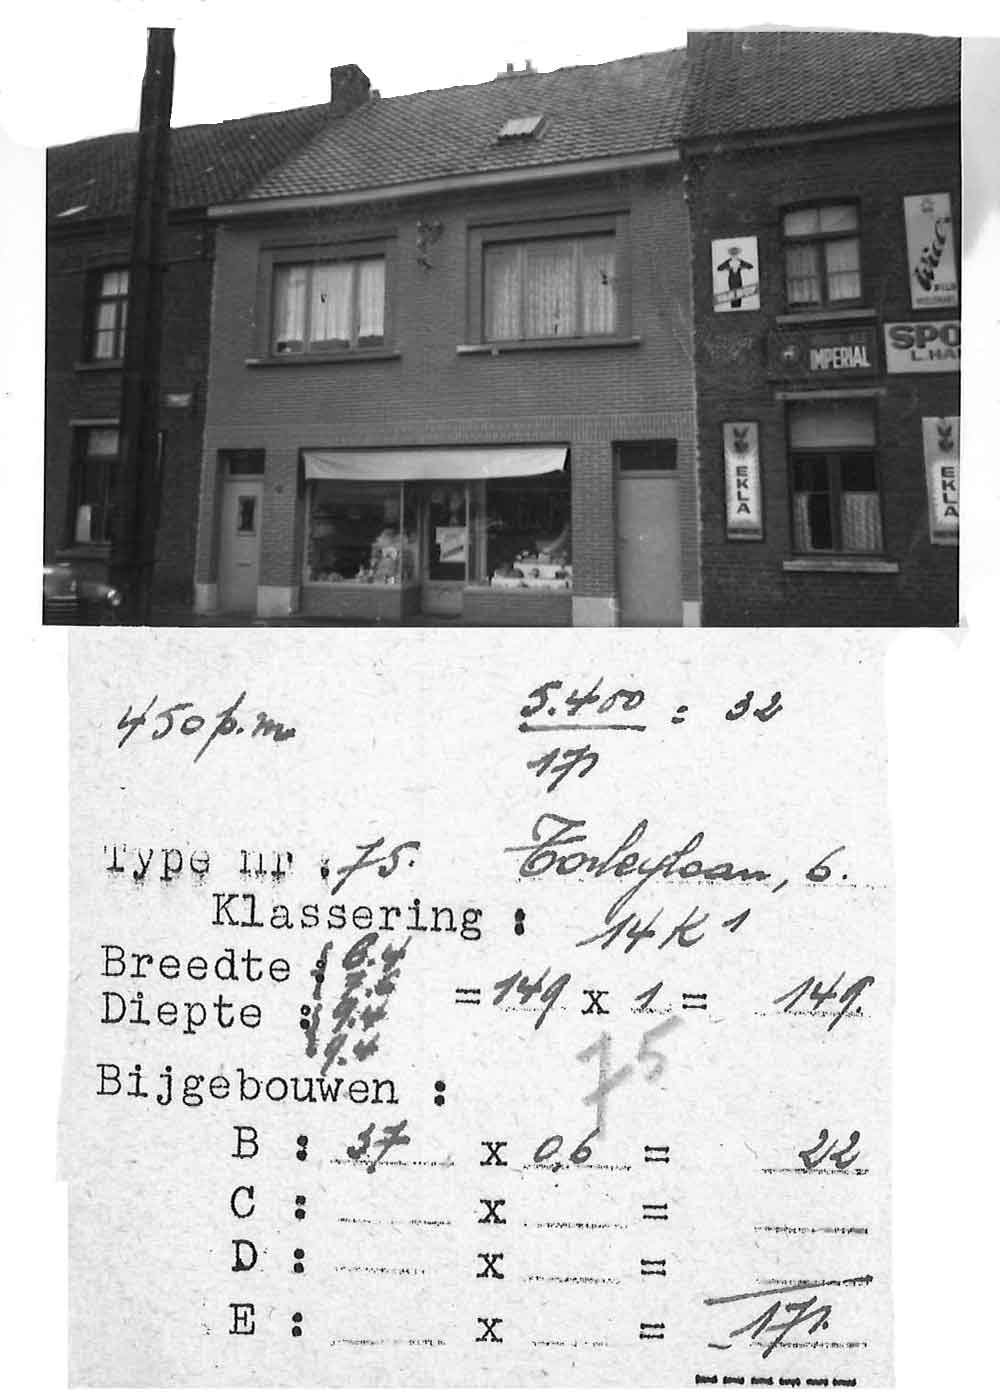 IMPERIAL
SPO
L. HA
EKLA
EKLA
450 p.m.
5.400 : 32
171
Type nr : 75.
Torleylaan, 6.
Klassering : 14 K 1
Breedte : 6.4
7.6
= 149 x 1 = 149.
Diepte : 9.4
9.4
75
Bijgebouwen :
B : 37 x 0,6 = 22
C : x =
D : x =
E : x = 171.